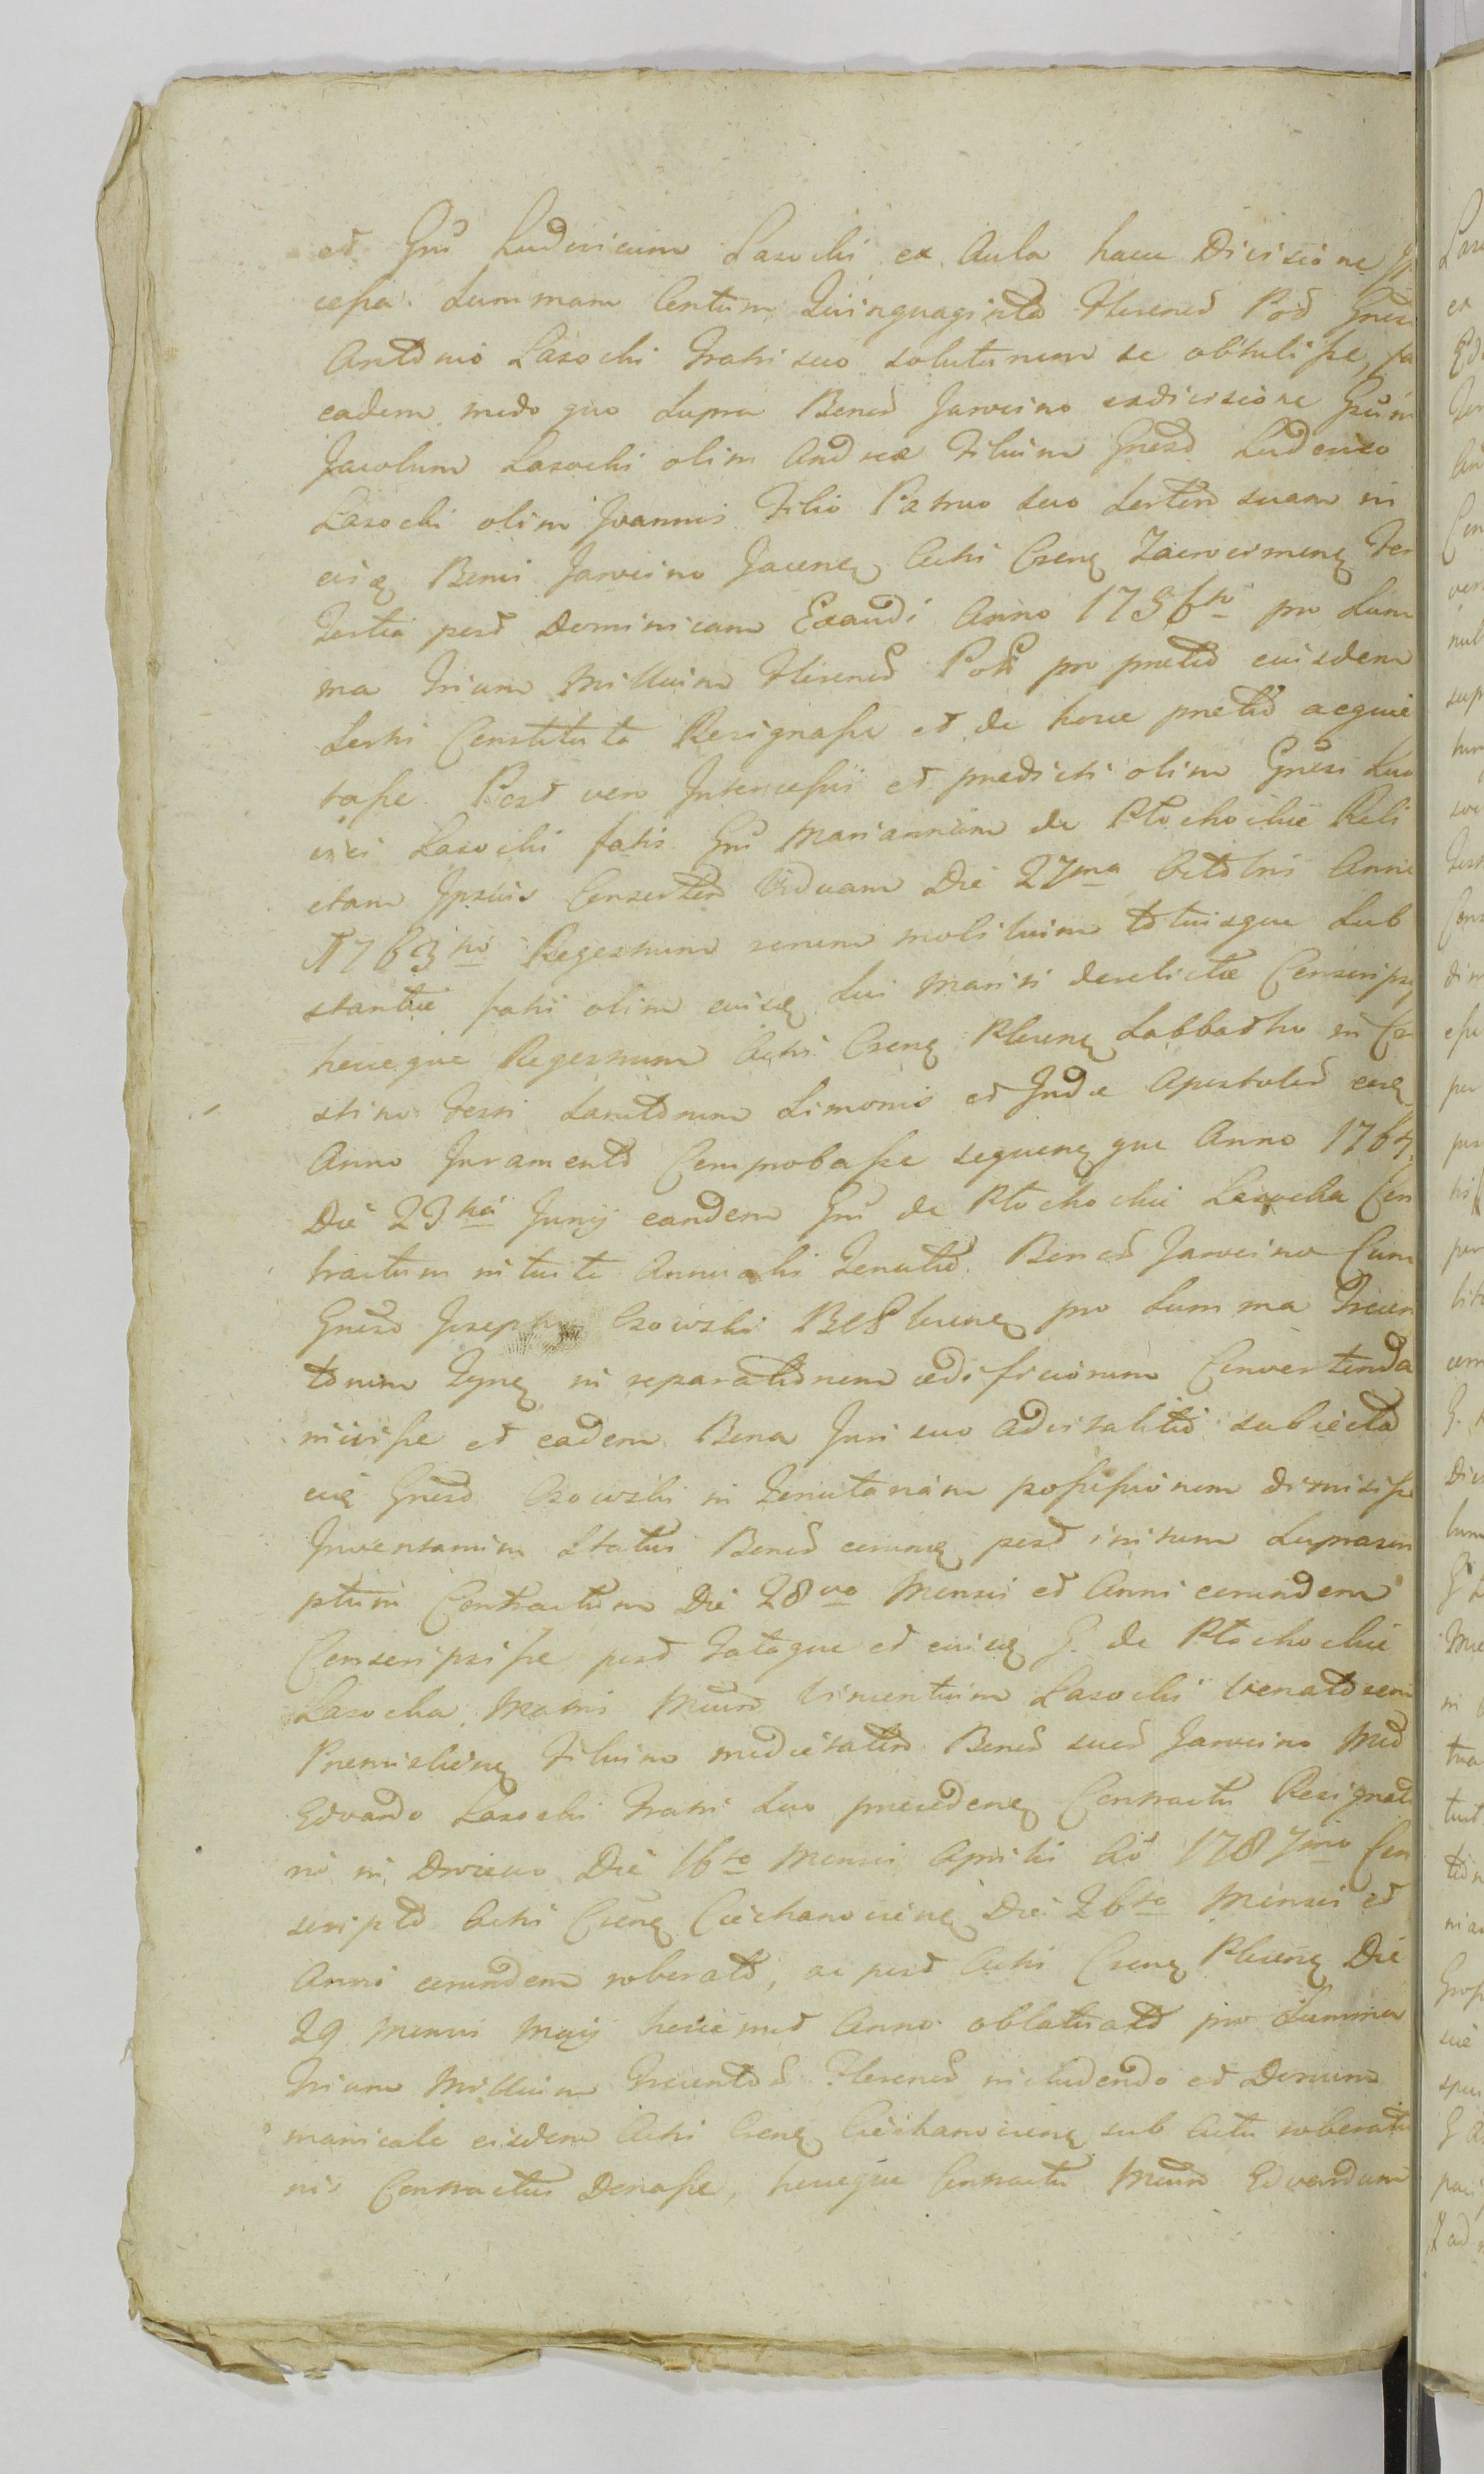 et Gnũ Ludovicum Lasocki ex Aula hacce Divisione
cessa. Summam Centum Quinquaginta Floreñ Poł Gneso
Antonio Lasocki Fratri suo soluturum se obtulisse,
eadem modo quo supra Bonor̃ Jarocino exdivisione Gnum
Jacobum Lasocki olim Andreæ Filium Gneso Ludovico
Lasocki olim Joannis Filio Patruo suo Sortem suam in
eisq Bonis Jarocino Jacenq Actis Csenq Zacrocimenq Fer
Tertia post Dominicam Exaudi Anno 1756to pro Sum
ma Trium Millium Florenor Poł pro pretio eiusdem
Sortis Constituta Resignasse et de hocce pretio acquie
tasse. Post vero Intercessũ et prædicti olim Gnesi Ludo
vici Lasocki fatis Gnũ Mariannam de Płochockie Reli
ctam Ipsius Consortem Viduam Die 27ma Octobris Anni
1763tio Regestrum rerum mobilium totiusque Sub
stantiæ fatti olim eiusq Sui Mariti derelictæ Conscrips
hocceque Regestrum Actis Csenq Plocenq Sabbatho in Cra
stino Festi Sanctorum Simonis et Judæ Apostolor eoq
Anno Juramento Comprobasse sequenqque Anno 1764
Die 23tia Junij eandem Gnũ de Płochockie Lasocka Con
tractum intuitu Annualis Tenutæ Bonor Jarocino Cum
Gneso Josepho Osowski BCS Cuenq pro Summa Trecen
torum Tynq in reparationem ædificiorum Convertenda
inivisse et eadem Bona Juri suo advitalitio subiecta
eiq Gneso Osowski in Tenutariam possessionem dimisisse
Inventarium Status Bonor eorumq post initum Suprascri
ptum Contractum Die 28va Mensis et Anni eorundem
Conscripsisse post Fataque et eiusq G. de Płochockie
Lasocka Matris Mcum Vincentium Lasocki Venatorem
Premislienq Filium medietatem Bonor suor Jarocino Mco
Edvardo Lasocki Fratri suo præcedenq Contractu Resignatio
nis in Drwiewo Die 16ta Mensis Aprilis Aõ 1787imo Con
scripto Actis Csenq Ciechanovienq Die 26ta Mensis et
Anni eorundem roborato, ac post Actis Csenq Plocenq Die
29 Mensis Maij hocce met Anno oblatuato pro Summa
Trium Millium Trecentor Florenor includendo et Donum
manicale eisdem Actis Csenq Ciechanovienq sub actu roboratio
nis Contractus Donasse, hocceque Contractu Mcum Edvardum